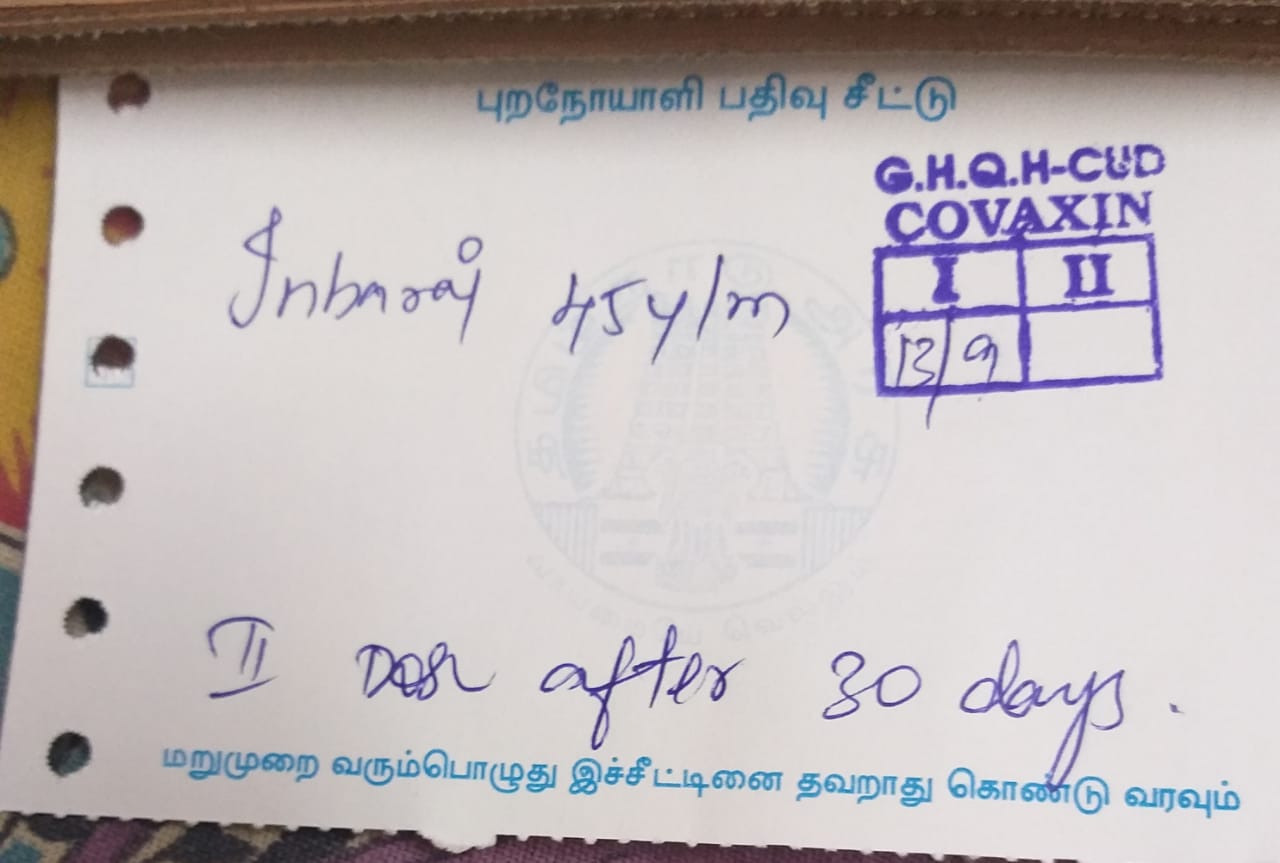 புறநோயாளி பதிவு சீட்டு
G.H.Q.H-CUD
COVAXIN
I II
13/9
Inbaraj 45y/m
II Dose after 30 days.
மறுமுறை வரும்பொழுது இச்சீட்டினை தவறாது கொண்டு வரவும்